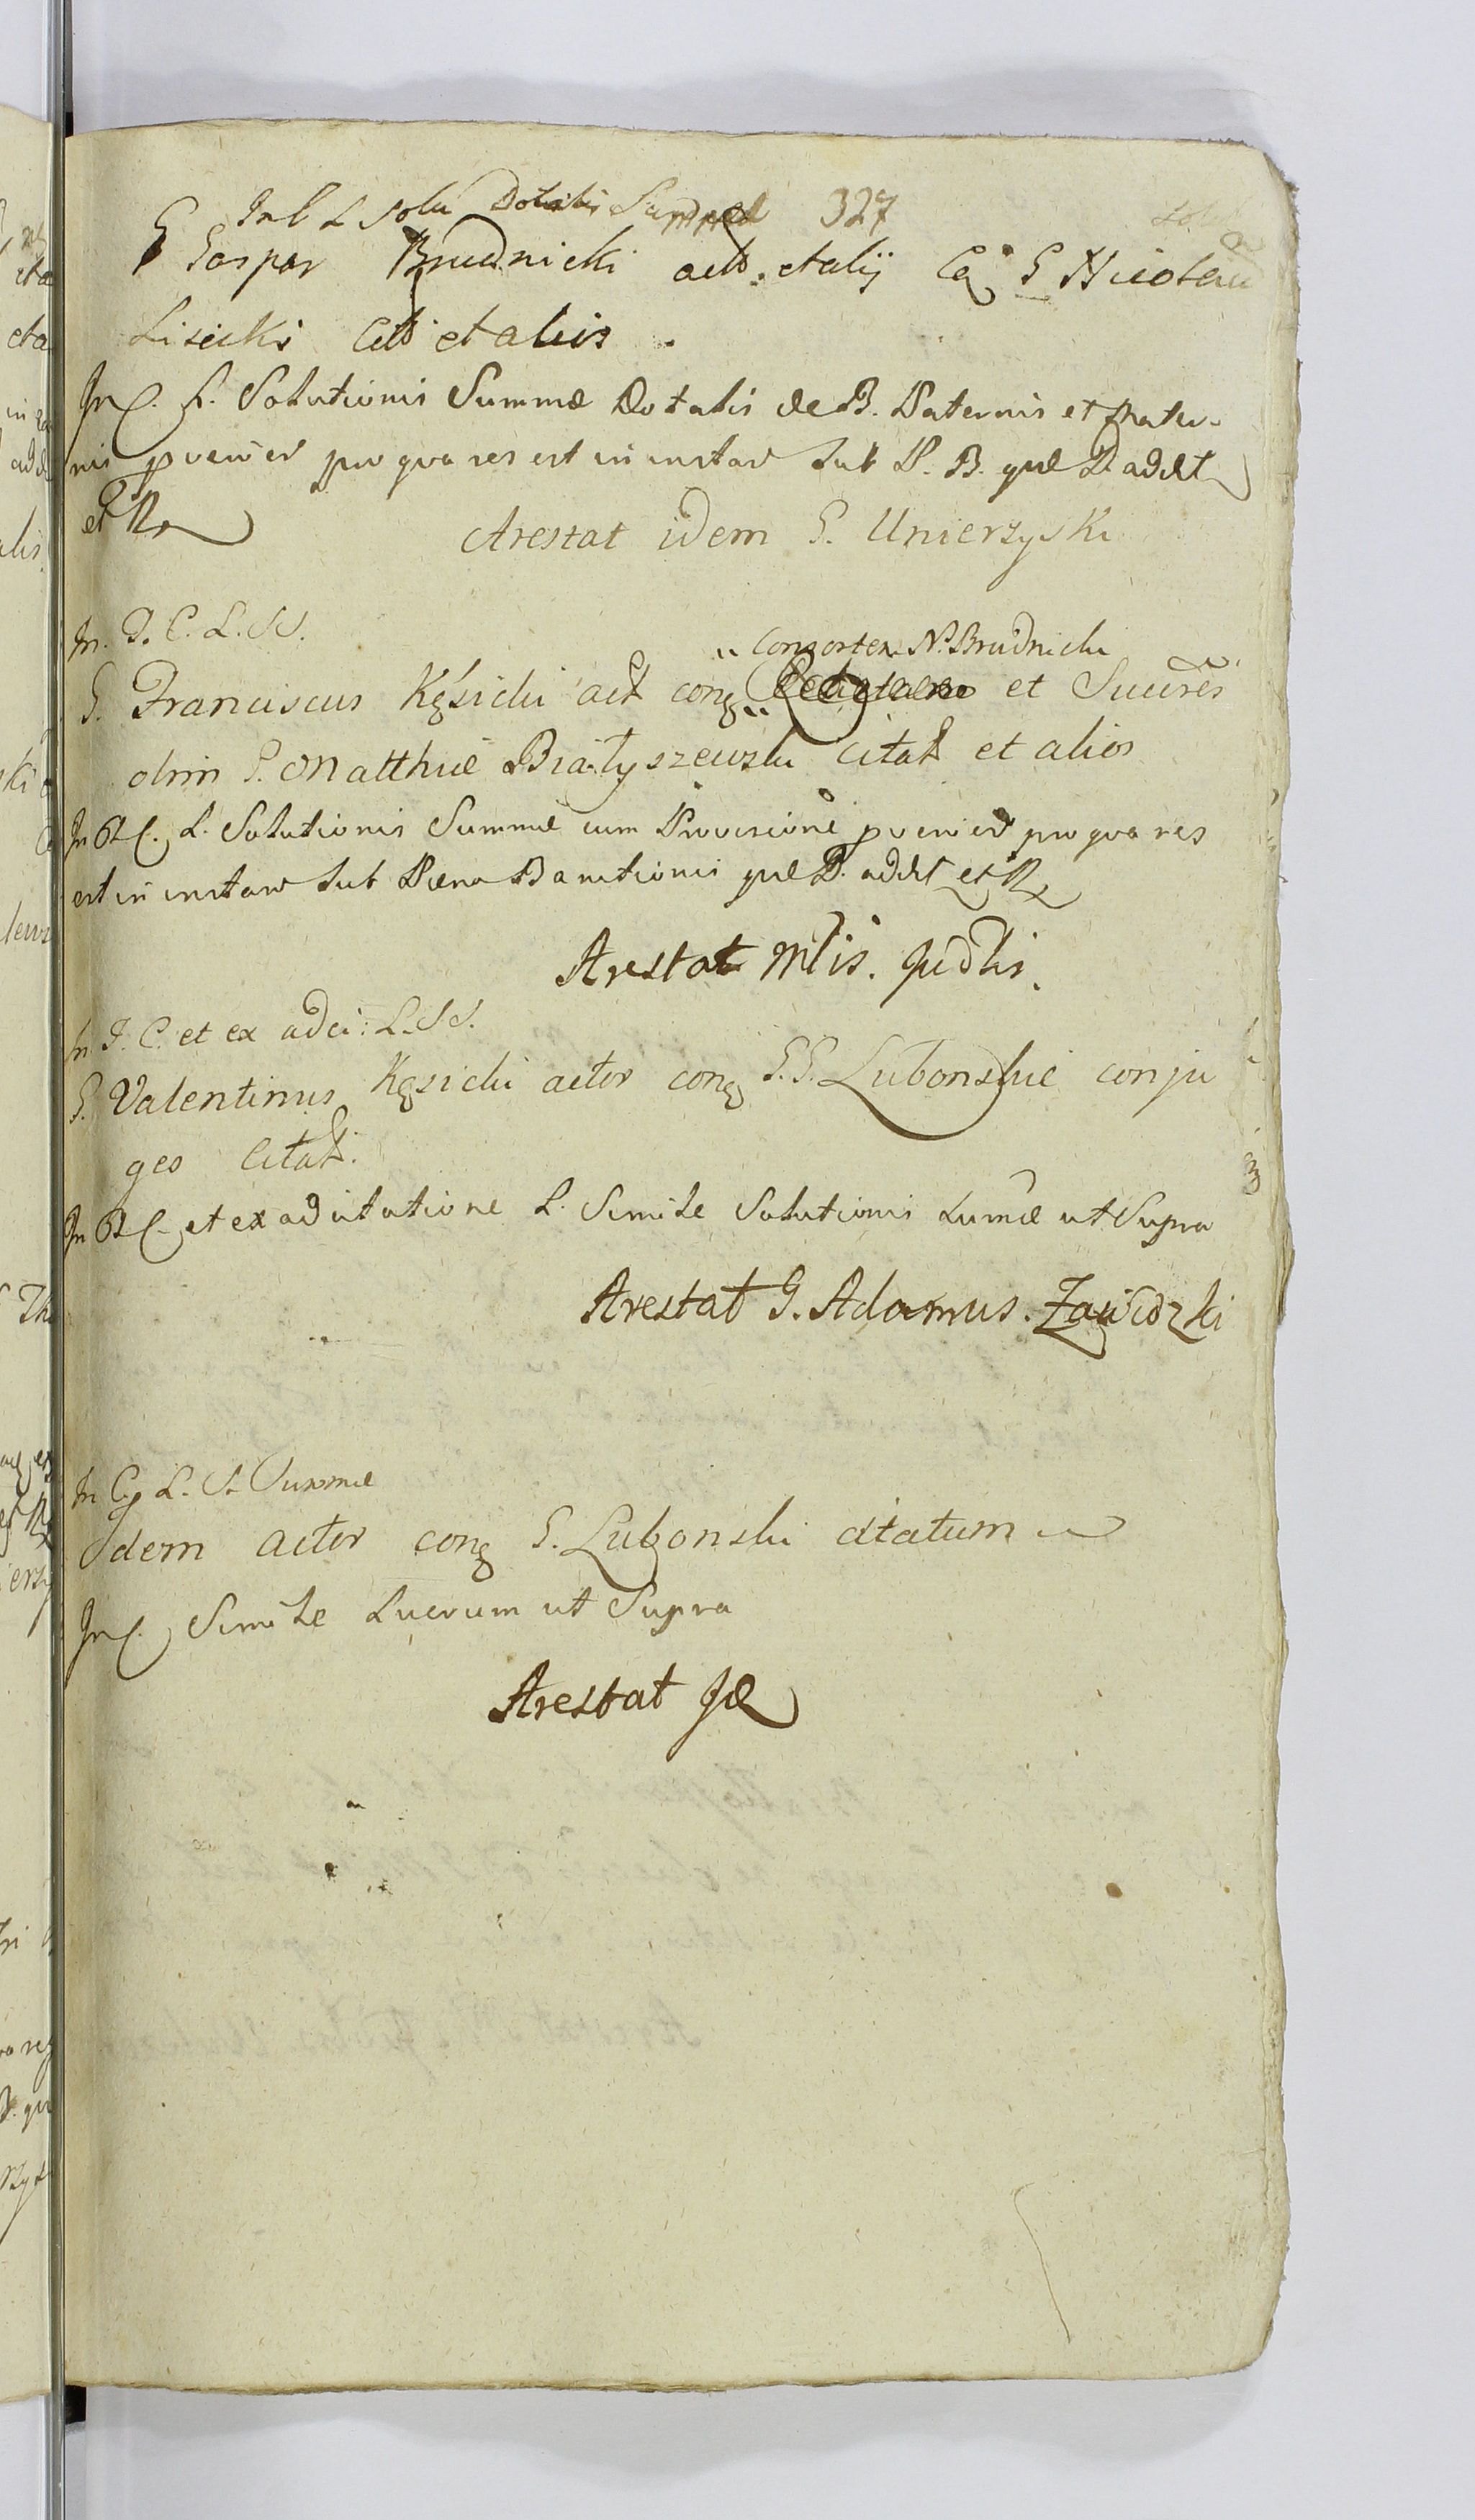 In C L Solu Dotalis Summæ 327
G Gaspar Brudnicki actō. et alij Cq̄ G Nicolaū
Lisicki Cittō et alios
In C. L. Solutionis Summæ Dotalis de B. Paternis et Mater-
nis proven̄ pro qua res est in instan̄ sub P. B. quæ D. addit
et R
Arestat idem G. Unierzyski
In T. C. L. SS.
„ Consorten N. Brudnicki
G. Franciscus Kęsicki act cong „ et Sucr̄es
olim G. Matthiæ Białyszewski citat et alios
In T C. L. Solutionis Summæ cum Provisione proven̄ pro qua res
est in instan̄ sub Pæna Banitionis quæ D. addit et R
Arestat Mlis. Judlis.
In T. C. et ex adci: L. SS.
G. Valentinus Kęsicki actor cong G.G. Lubonskie conju
ges Citat.
In T C. et ex adcitatione L. Simile Solutionis sum̄æ ut Supra
Arestat G. Adamus. Zawidzki
In C L. S. Summæ
Idem actor cong G. Lubonski citatum
In C. Simile Lucrum ut Supra
Arestat Id